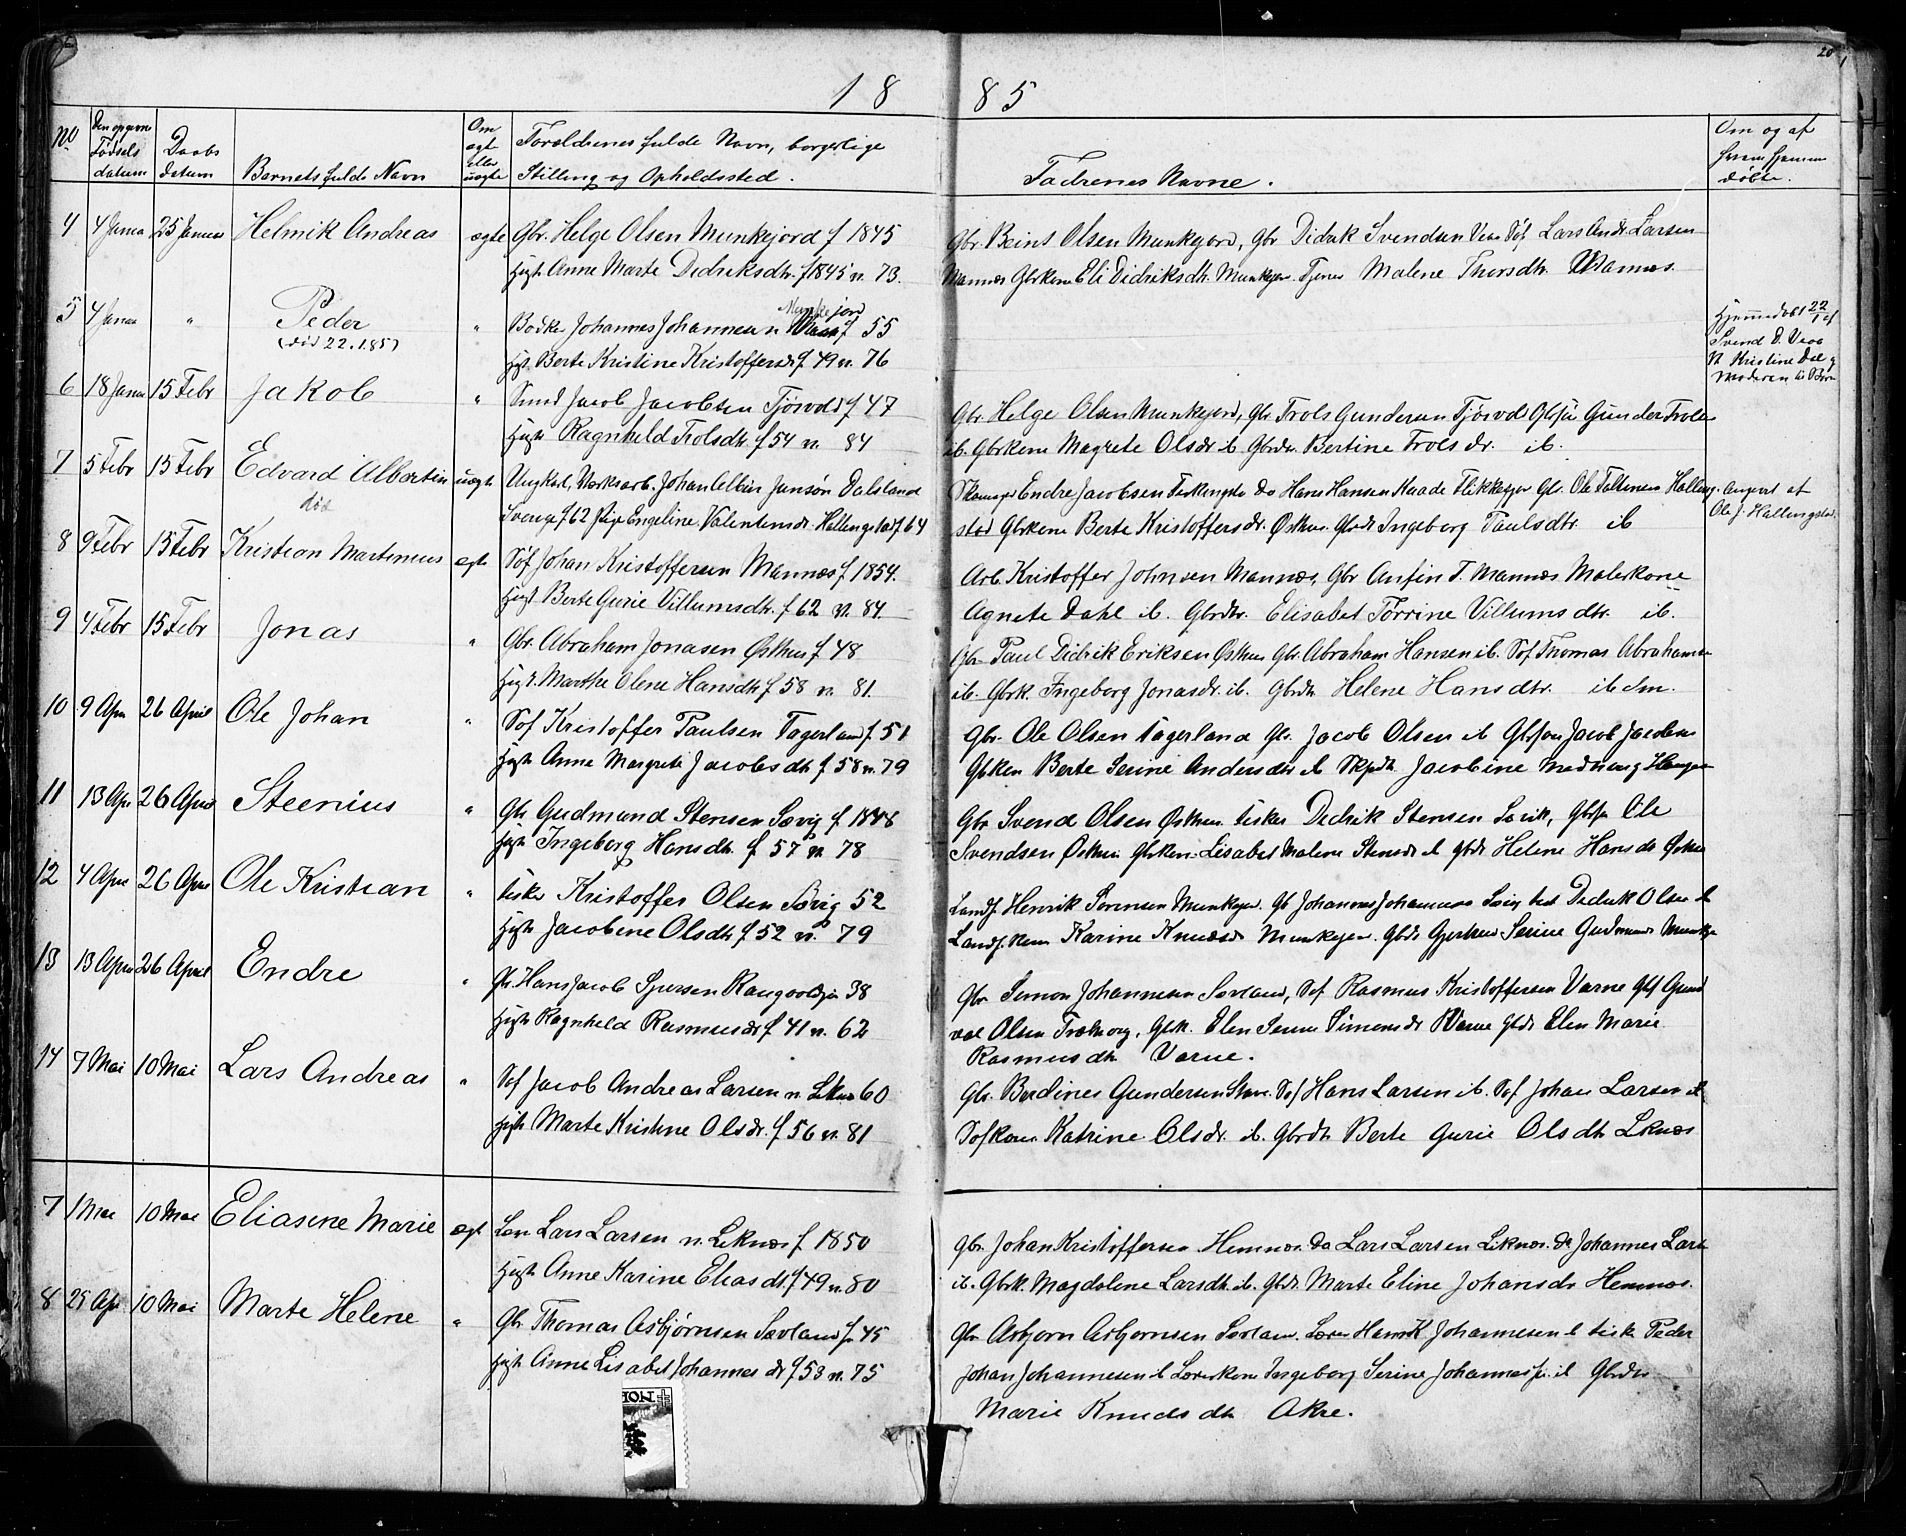 18 85
20
No
Den opgivne Fødsels datum
Daabs datum
Barnets fulde Navn
Om ægt eller uægte
Forældrenes fulde Navn, borgerlige
Stilling og Opholdssted.
Fadrenes Navne.
Om og af hvem hjemme døbte.
4 4 Janua 25 Januar Helmik Andreas ægte Gbr. Helge Olsen Munkejord f 1845
Hust Anne Marte Didriksdtr. f 1845 v. 73.
Gbr. Beint Olsen Munkejord, Gbr Didrik Svendsen Søf. Lars Andr. Larsen
Mannæs Gbrkone Eli Didriksdtr. Munkejor. Tjener Malene Thorsdtr. Mannæs.
5 4 Janua " Peder " Bødker Johannes Johannesen Munkejord f 55
(død 22.1.85)
Hust. Berte Kristine Kristoffersdr f 49 v. 76
Hjemmedøbt 22/1 af
Svend D. Veae
Kristine Dal
Moderen til Barn
6 18 Janua 15 Febr Jakob " Smed Jacob Jacobsen Tjøsvold f 47
Hust Ragnhild Trolsdtr. f 54 v. 84
Gbr. Helge Olsen Munkejord, Gbr. Trols Gundersen Tjøsvold Gbrsøn Gunder Trols
ib. Gbrkone Magrete Olsdr ib Gbrdtr. Bertine Trolsdr. ib.
7 5 Febr 15 Febr Edvard Albertin uægte Ungkarl, Værksarb. Johan Albin Jansøn Dalsland
død
Sverige f 62 Pige Engeline Valentinsdr. Hallingstad f 64
Skomager Endre Jacobsen Ferkingsta do Hans Hansen Kaade Flikkejor Gbr. Ole Halling
stad Gbrkone Berte Kristoffersdr. Østhus Gbrdr Ingeborg Paulsdtr. ib
Angivet af
Ole J. Hallingstad.
8 9 Febr 15 Febr Kristian Martenius ægte Søf Johan Kristoffersen Mannæs f 1854.
Hust Berte Gurie Villumsdtr. f 62 v. 84
Arb. Kristoffer Johnsen Mannæs, Gbr Anfin T. Mannæs Malerkone
Agnete Dahl ib. Gbrdtr. Elisabet Tørrine Villumsdtr. ib.
9 4 Febr 15 Febr Jonas " Gbr. Abraham Jonasen Østhus f 48
Hust. Marthe Olene Hansdtr f 58 v. 81.
Gbr Paul Didrik Eriksen Østhus Gbr. Abraham Hansen ib. Søf Thomas Abrahamsen
ib. Gbrk. Ingeborg Jonasdr. ib. Gbrdtr Helene Hansdtr. ibdm.
10 9 Apr 26 April Ole Johan " Søf Kristoffer Paulsen Fagerland f. 51
Hust Anne Margrete Jacobsdtr f 58 v. 79
Gbr. Ole Olsen Fagerland Gbr. Jacob Olsen ib Gbrsøn Jacob Jacobsen
Gbrkon Berte Serine Andersdtr ib Jacobine
11 13 Apr 26 April Steenius " Gbr Gudmund Stensen Sævig f 1848
Hust Ingeborg Hansdtr. f 57 v. 78
Gbr Svend Olsen Østhus fisker Didrik Stensen Sævik, Gbrsøn Ole
Svendsen Østhus Gbrkon. Lisabet Malene Stensdr ib Gbrdr Helene Hansdr Østhus
12 4 Apr 26 Apr Ole Kristian " fisker Kristoffer Olsen Sævig 52
Hust Jacobine Olsdtr f 52 v. 79
Landh. Henrik Sørensen Munkejor. Gbr Johannes Johannesen Sævig fisk Didrik Olsen ib
Landh. kone Karine Knudsdr Munkejor. Gbrdr Gjertrud Serine Gudmunds Munkej
13 13 Apr 26 April Endre " Gbr. Hans Jacob Sjursen 38
Hust Ragnhild Rasmusdr f 41 v. 62
Gbr Simon Johannesen Sørland, Søf Rasmus Kristoffersen Varne Gbrs Gund
val Olsen, Gbrk. Elen Serine Simonsdr Varne Gbrdr Elen Marie
Rasmusdtr Varne.
14 7 Mai 10 Mai Lars Andreas " Søf Jacob Andreas Larsen n. Liknæs 60
Hust Marte Kristine Olsdr. f 56 v. 81
Gbr. Berdines Gundersen. Søf Hans Larsen ib. Søf Johan Larsen ib
Søfkone Katrine Olsdr. ib. Gbrdtr Berte Gurie Olsdtr Liknæs
7 1 Mai 10 Mai Eliasine Marie ægt Lars Larsen n. Liknæs f 1850
Hust Anne Karine Eliasdtr. f 49 v. 80
Gbr. Johan Kristoffersen Hemnæs. do Lars Larsen Liknæs. do Johannes Lars
ib. Gbrk. Magdalene Larsdtr. ib. Gbrdr Marte Eline Johansdr Hemnæs.
8 25 Apr. 10 Mai Marte Helene " Gbr Thomas Asbjørnsen Sævland f 45
Hust Anne Lisabet Johannesdr f 53 v. 75
Gbr Asbjørn Asbjørnsen Sævlan. Lærer Henrik Johannesen ib fisk Peder
Johan Johannesen ib Lærerkone Ingeborg Serine Johannesd. ib Gbrdtr
Marie Knudsdtr Akre.